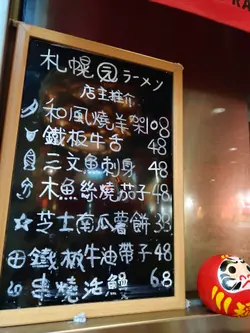 札幌 ラーメン
店主推介
和風燒羊架108
鐵板牛舌 48
三文魚刺身 48
木魚絲燒茄子48
芝士南瓜薯餅38
鐵板牛油帶子48
串燒活鰻 68
RA